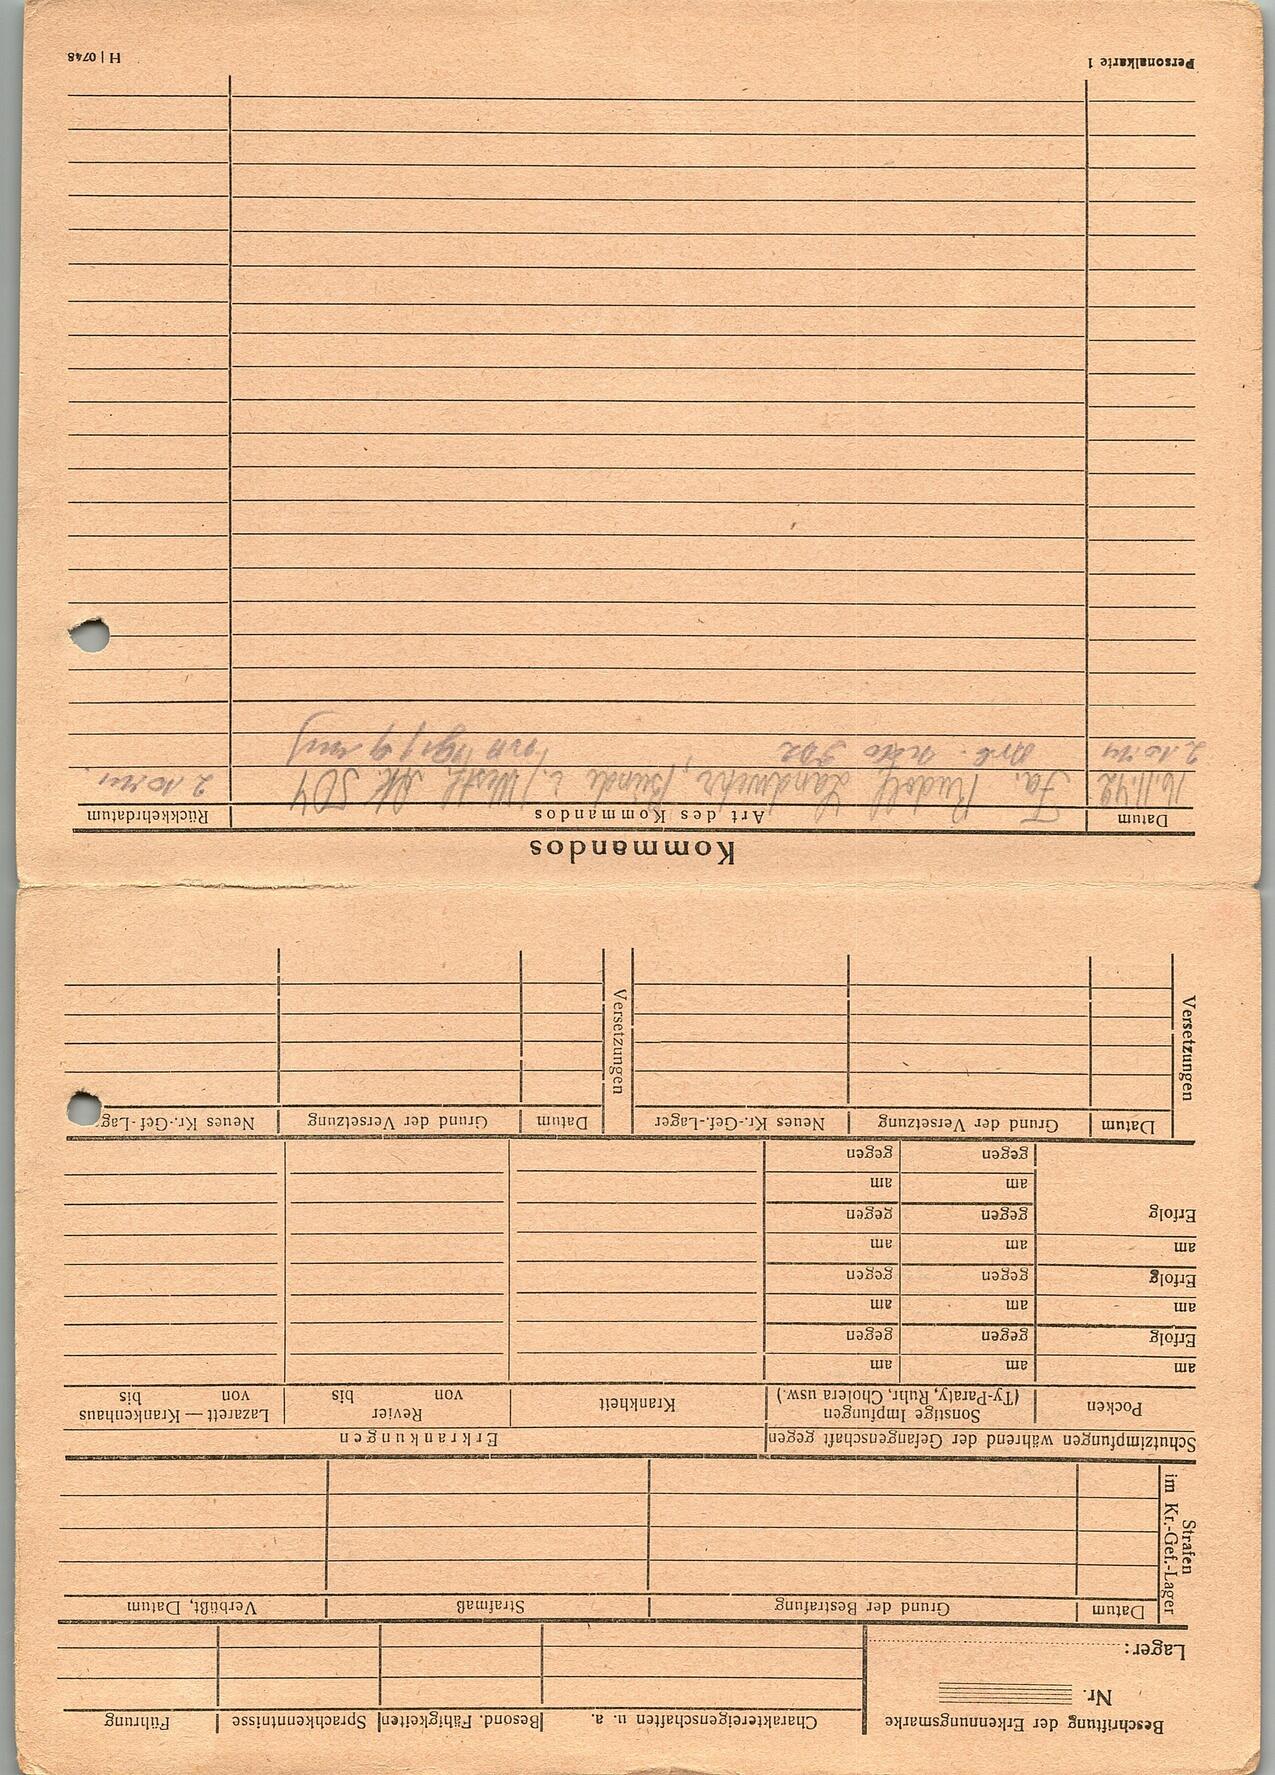 Beschriftung der Erkennungsmarke | Charaktereigenschaften u. a. | Besond. Fähigkeiten | Sprachkenntnisse | Führung
Nr.
Lager:
Strafen
im Kr.-Gef.-Lager
Datum | Grund der Bestrafung | Strafmaß | Verbüßt, Datum
Schutzimpfungen während der Gefangenschaft gegen | Erkrankungen
Pocken | Sonstige Impfungen | Krankheit | Revier | Lazarett — Krankenhaus
(Ty-Paraty, Ruhr, Cholera usw.) | von bis | von bis
am | am | am
Erfolg | gegen | gegen
am | am | am
Erfolg | gegen | gegen
am | am | am
Erfolg | gegen | gegen
am | am
gegen | gegen
Versetzungen | Datum | Grund der Versetzung | Neues Kr.-Gef.-Lager | Versetzungen | Datum | Grund der Versetzung | Neues Kr.-Gef-Lag
Kommandos
Datum | Art des Kommandos | Rückkehrdatum
16.11.42 Fa. Rudolf Landwehr, Bünde i./Westf. AK. 504 2.10.44.
2.10.44 Arb. Kdo 902
Personalkarte 1 H | 0748